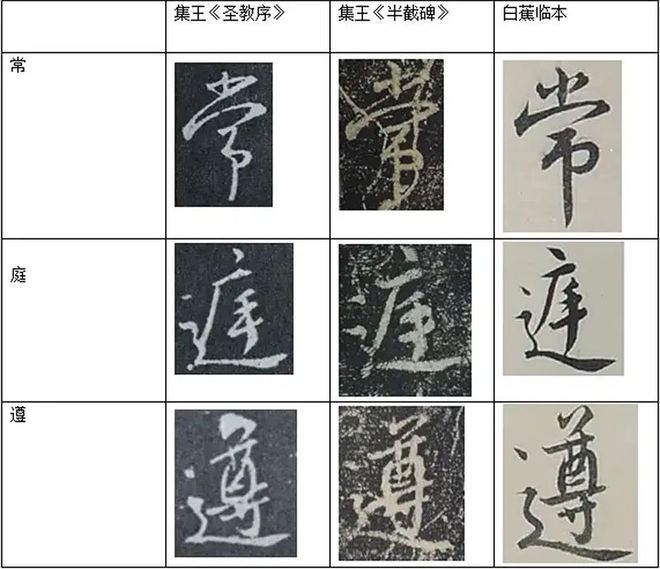 集王《圣教序》 集王《半截碑》 白蕉临本
常 常 常 常
庭 庭 庭 庭
遵 遵 遵 遵